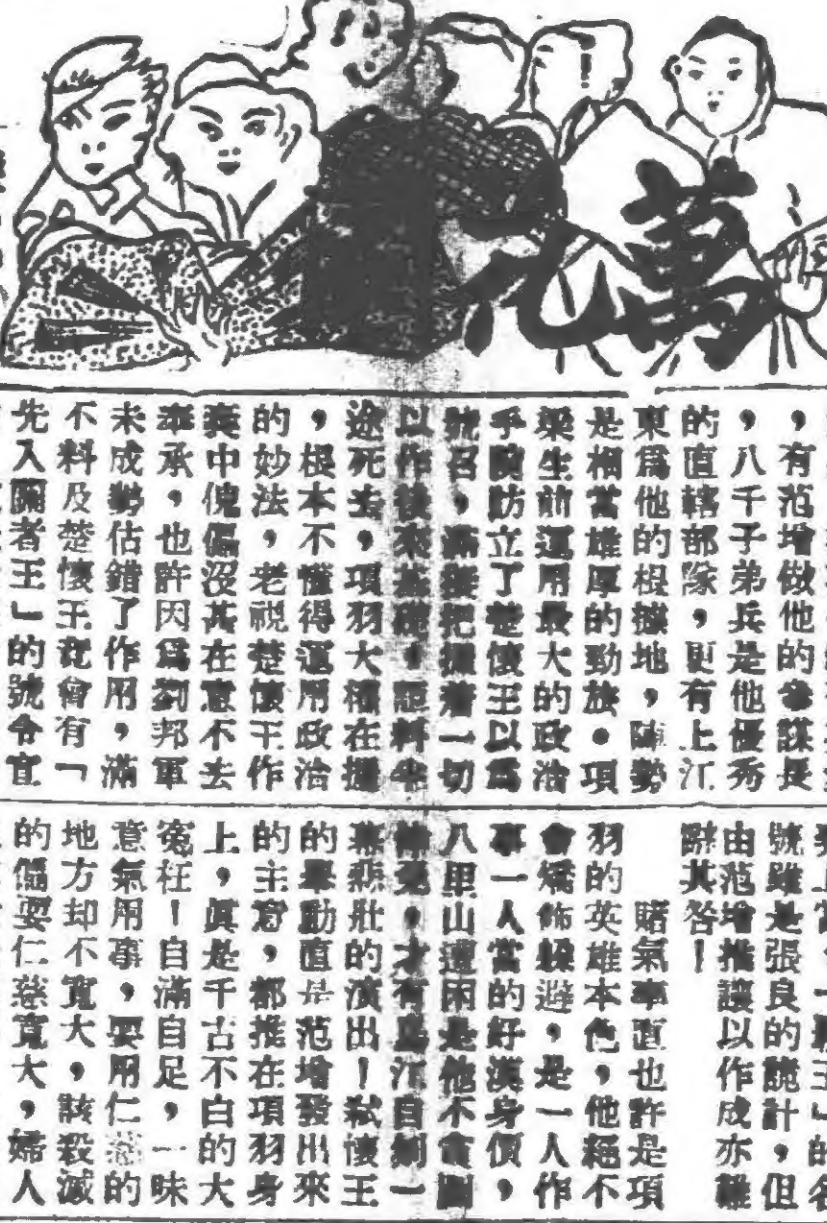 萬
，有范增做他的參謀是
，八千子弟兵是他優秀
的直轄部隊，更有上江
東爲他的根據地，陣勢
是相當雄厚的勁旅●項
梁生前運用最大的政治
手腕訪立了楚懷王以爲
號召，滿擬把握着一切
以作後來基礎，詎料半
途死去，項羽大權在握
，根本不懂得運用政治
的妙法，老視楚懷王作
衰中傀儡沒甚在意不去
奉承，也許因爲劉邦軍
未成勢估錯了作用，滿
不料及楚懷王竟會有「
先入關者王」的號令宣
王」的名
號雖是張良的詭計，但
由范增推讓以作成亦難
辭其咎！
賭氣率直也許是項
羽的英雄本色，他絕不
會矯飾躲避，是一人作
事一人當的好漢身價，
八里山遭困是他不貪圖
免，才有烏江自刎一
幕悲壯的演出！弒懷王
的舉動直是范增發出來
的主意，都推在項羽身
上，眞是千古不白的大
寃枉！自滿自足，一味
意氣用事，要用仁慈的
地方却不寬大，該殺滅
的偏要仁慈寬大，婦人